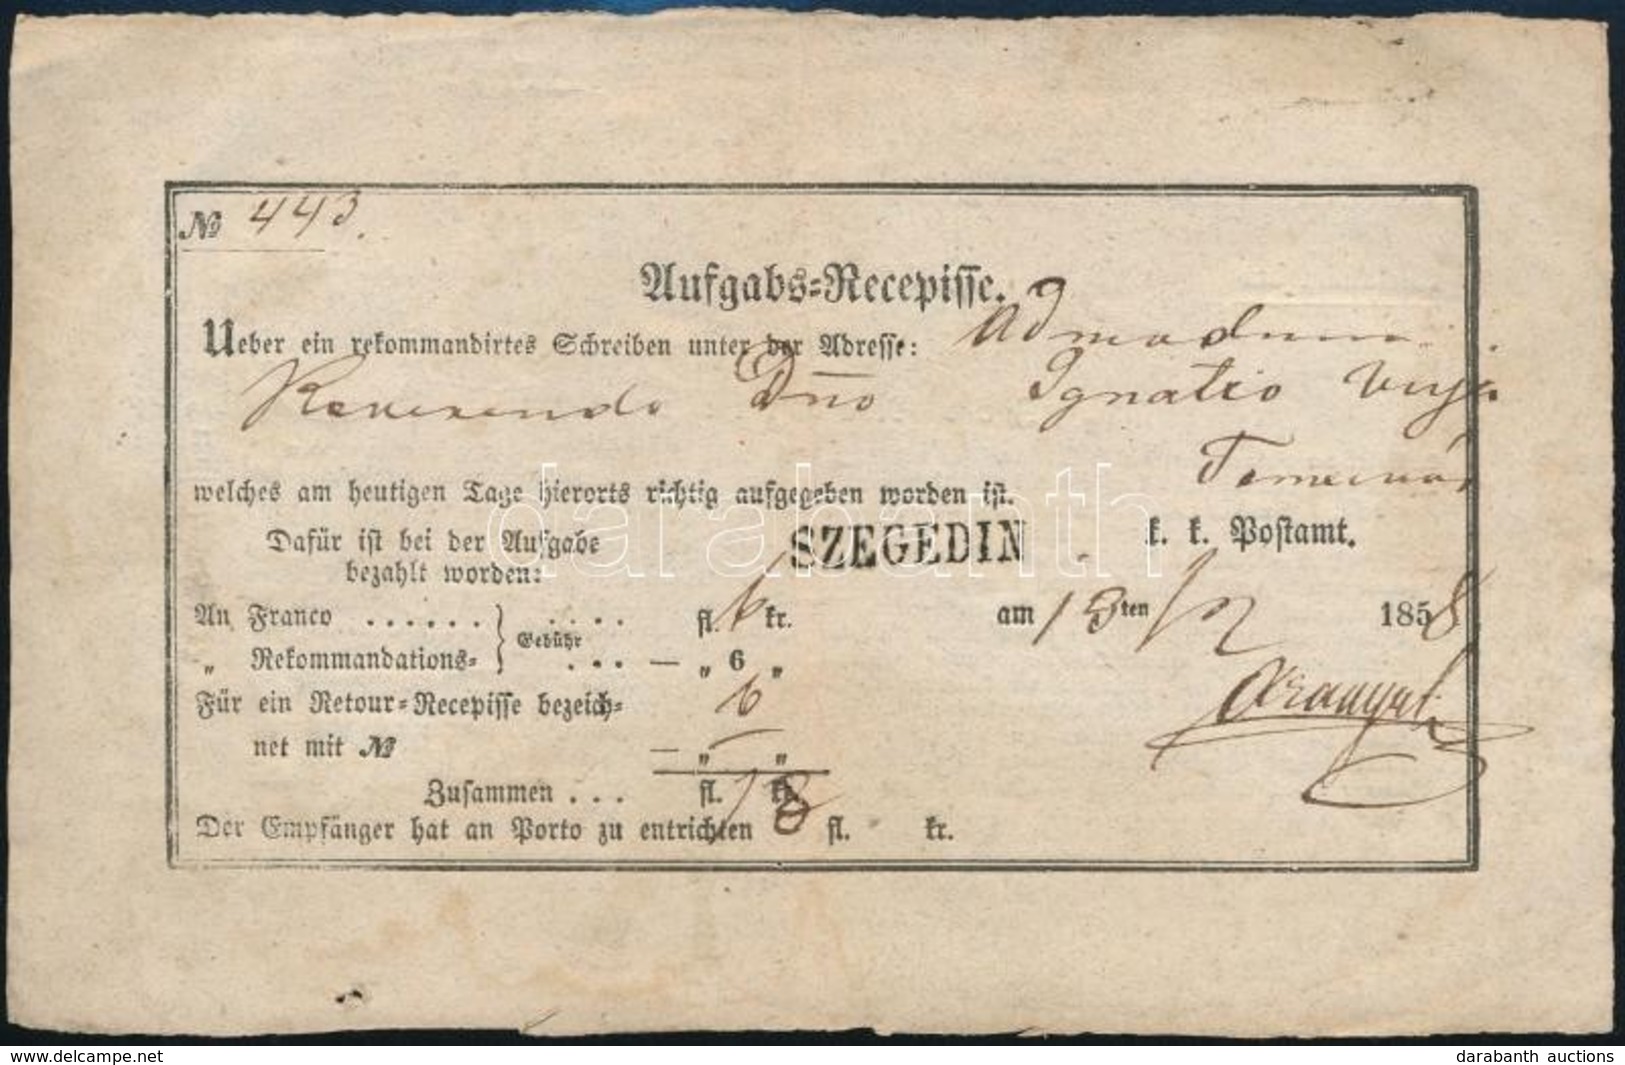 № 443.
Aufgabs-Recepisse.
Ueber ein rekommandirtes Schreiben unter der Adresse: Admodum
Reverendo Dno Ignatio
welches am heutigen Tage hierorts richtig aufgegeben worden ist.
Dafür ist bei der Aufgabe SZEGEDIN k. k. Postamt.
bezahlt worden:
An Franco . . . . . . Gebühr . . . . fl. 6 kr. am 13ten /12 1858
„ Rekommandations- . . . — „ 6 „
Für ein Retour-Recepisse bezeich- 6
net mit № — „ — „
Zusammen . . . fl. 18 kr.
Der Empfänger hat an Porto zu entrichten fl. kr.
darabanth
www.delcampe.net
darabanth auctions